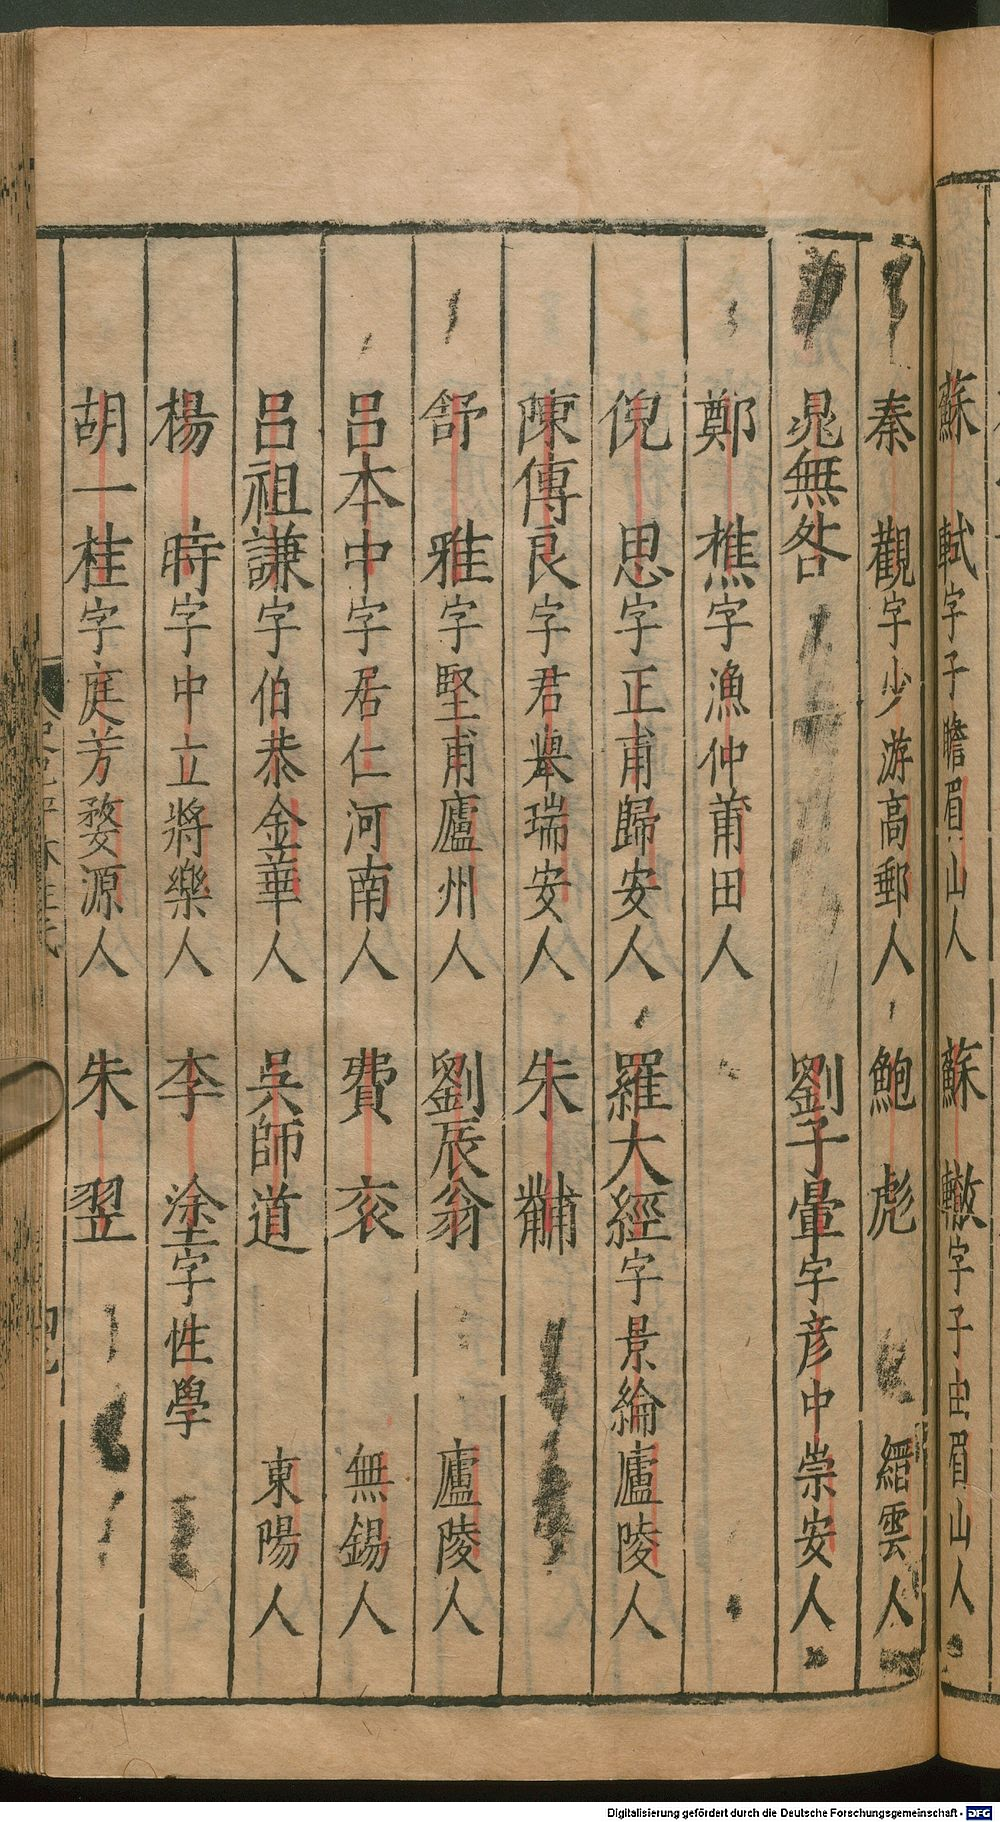 蘇　軾字子瞻眉山人　蘇　轍字子由眉山人
秦　觀字少游高郵人　鮑　彪　縉雲人
晁無咎　劉子翬字彥中崇安人
鄭　樵字漁仲莆田人
倪　思字正甫歸安人　羅大經字景綸廬陵人
陳傅良字君舉瑞安人　朱　黼
舒　雅字堅甫廬州人　劉辰翁　廬陵人
呂本中字居仁河南人　費　袞　無錫人
呂祖謙字伯恭金華人　吳師道　東陽人
楊　時字中立將樂人　李　塗字性學
胡一桂字庭芳婺源人　朱　翌
Digitalisierung gefördert durch die Deutsche Forschungsgemeinschaft - DFG